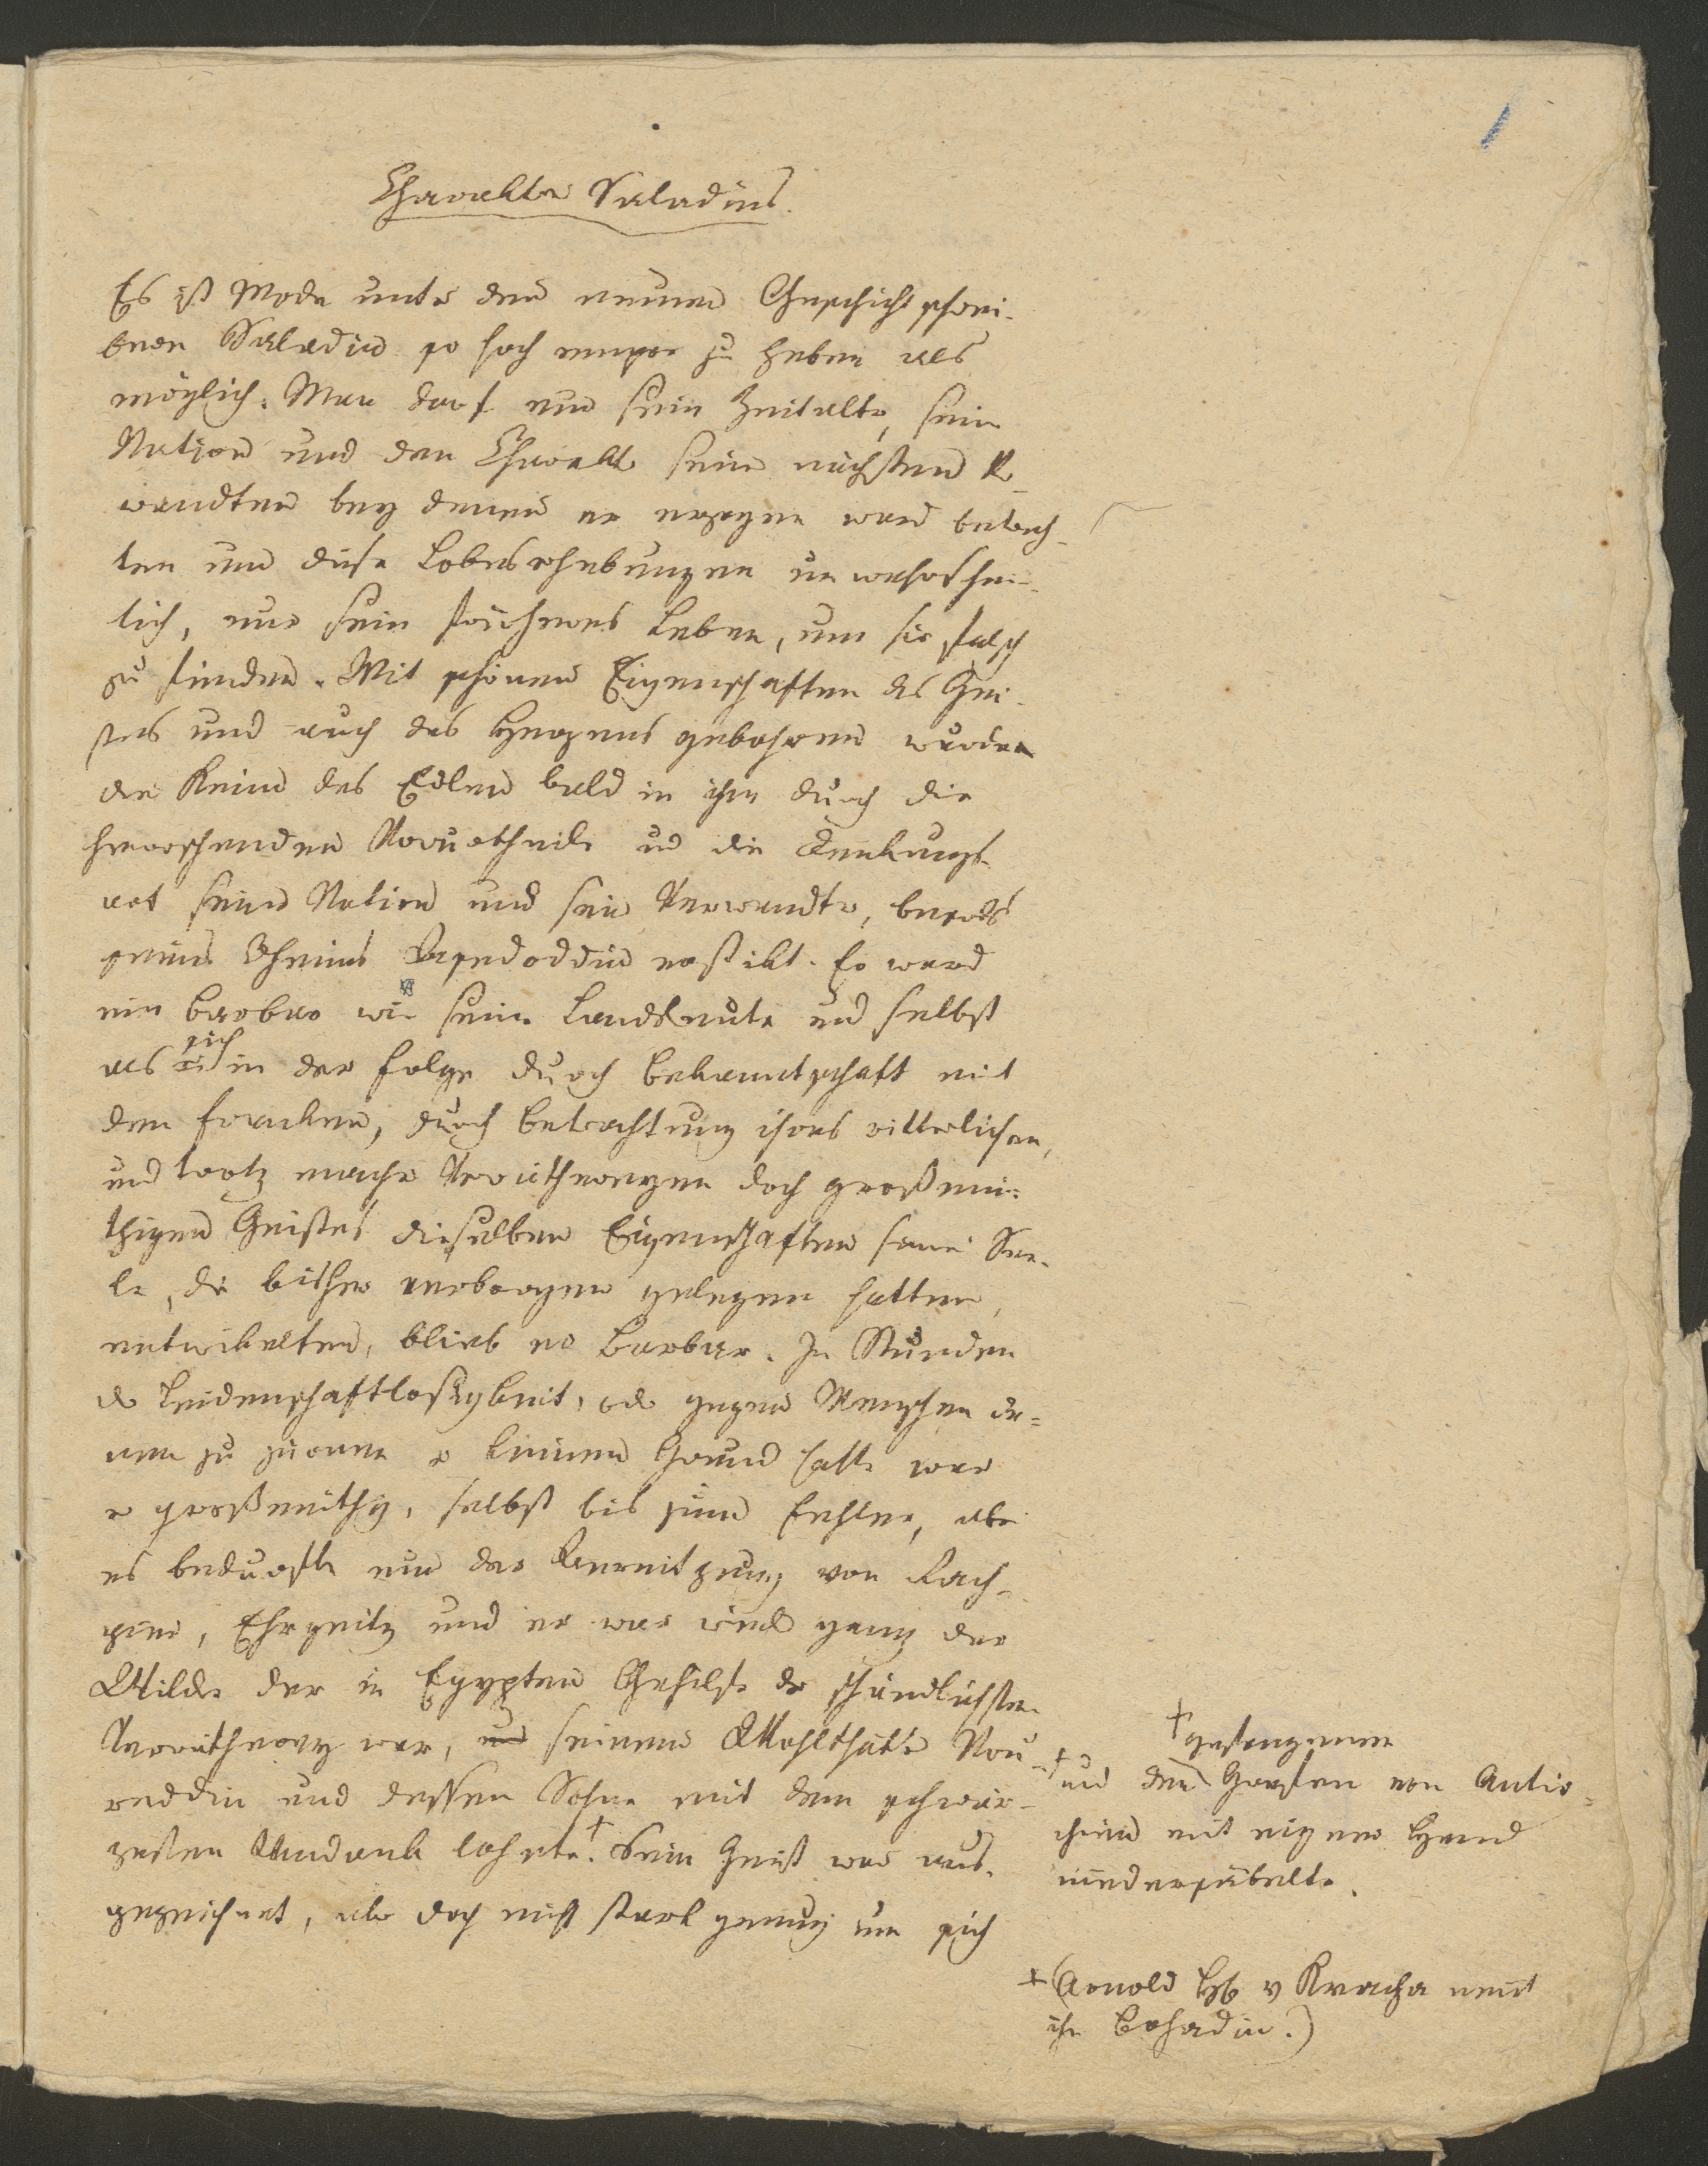 Charakter Saladins.
Es ist Mode unter den neuen Geschichtschrei-
bern Saladin so hoch empor zu heben als
möglich. Man darf nur sein Zeitalter, seine
Nation und den Charakter seiner nächsten Ver-
wandten bey denen er erzogen ward betrach-
ten um diese Lobeserhebungen unwahrschein-
lich, nur sein früheres Leben, um sie falsch
zu finden. Mit schönen Eigenschaften des Gei-
stes und auch des Herzens gebohren wurden
die Keime des Edlen bald in ihm durch die
herrschenden Vorurtheile und die Denkungs-
art seiner Nation und seiner Verwandten, besonders
seines Oheims erstikt. Er ward
ein Barbar wie seine Landsleute und selbst
als sich in der Folge durch Bekanntschaft mit
den Franken, durch Betrachtung ihres ritterlichen,
und trotz mancher Verräthereyen doch großmü-
thigen Geistes dieselben Eigenschaften seiner See-
le, die bisher verborgen gelegen hatten,
entwikelten, blieb er Barbar. In Stunden
der Leidenschaftlosigkeit, oder gegen Menschen de-
nen zu zürnen er keinen Grund hatte war
er großmüthig, selbst bis zum Fehler, aber
es bedurfte nur der von Rach-
sucht, Ehrgeitz und er war wieder ganz der
Wilde der in Egypten Gehilfe der schändlichsten
Verrätherey war, und seinem Wohlthäter Nou-
reddin und dessen Sohne mit dem schwär-
zesten Undank lohnte. Sein Geist war aus-
gezeichnet, aber doch nicht stark genug um sich
† gefangenen
† und den Fürsten von Antio-
chien mit eigner Hand
niedersäbelte.
† (Arnold v nennt
ihn Bohadin.)